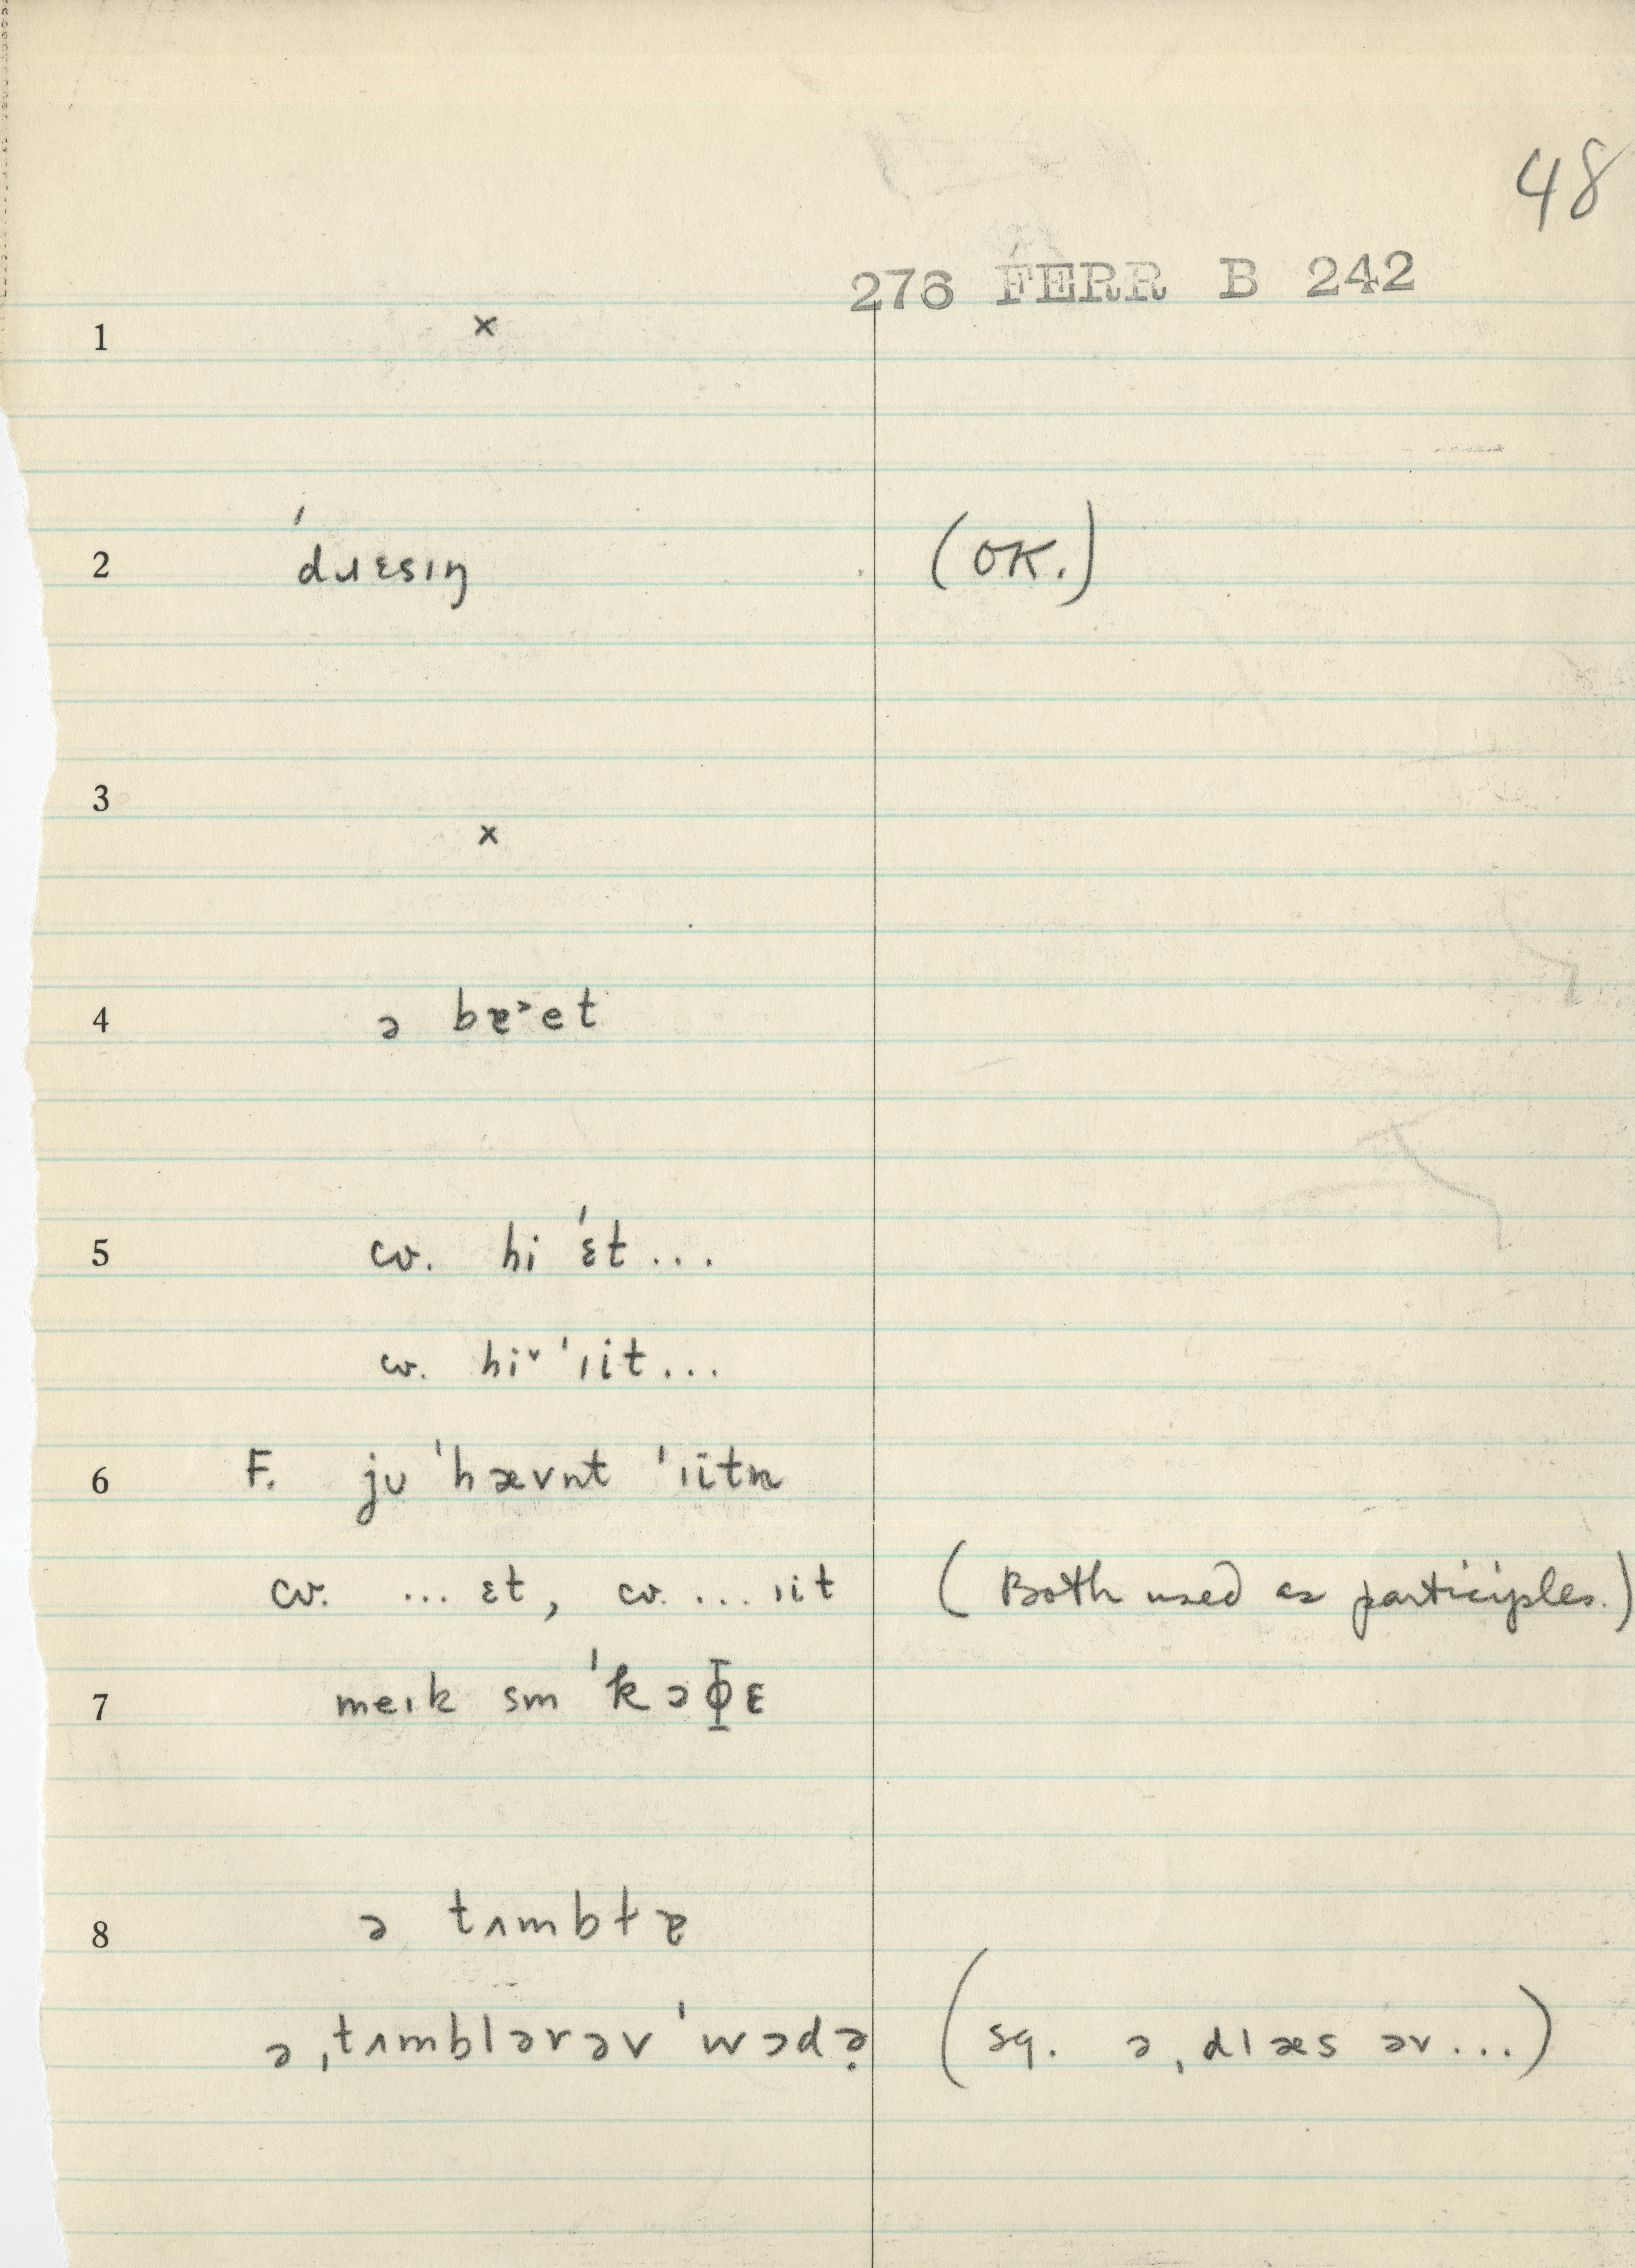 48
276 FERR B 242
1 ×
2 ˈdɹɛsɪŋ (OK.)
3 ×
4 ə bɐ˃et
5 cv. hi ˈɛt...
cv. hi˅ ˈɪit...
6 F. jʊ ˈhævn̩t ˈɪitn̩
cv. ... ɛt, cv. ... ɪit (Both used as participles.)
7 meɪk sm ˈkɔɸɛ
8 ə tʌmbɫɐ
ə ˌtʌmblərəv ˈwɔdə̣ (sq. ə ˌdlæs əv...)